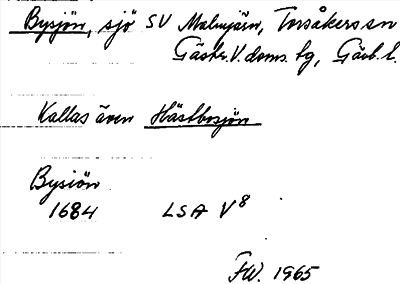 Bysjön, sjö SV Malmjärn, Torsåkers sn
Gästr. V. doms. tg, Gävb. l.
Kallas även Hästbosjön
Bysiön
1684 LSA V8
FW. 1965